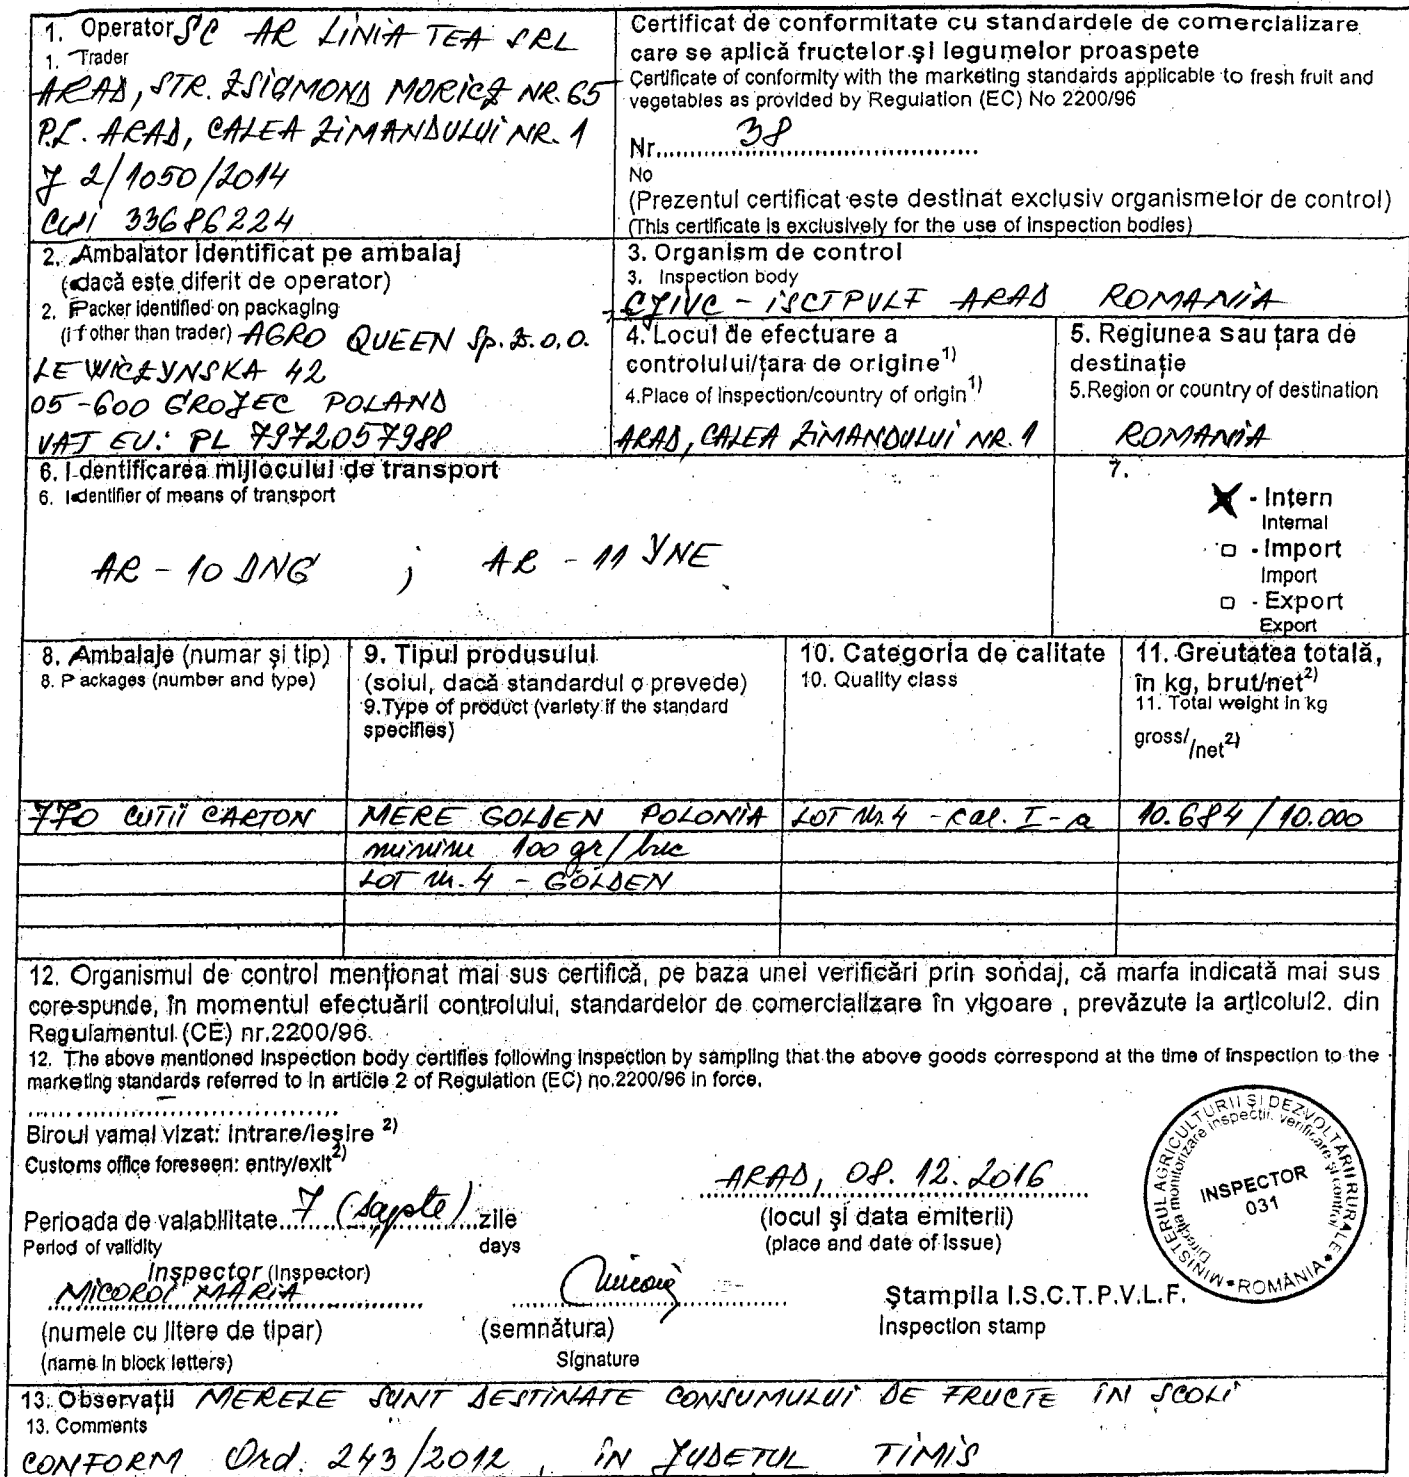 1. Operator SC AR LINIA TEA SRL
1. Trader
ARAD, STR. ZSIGMOND MORICZ NR. 65
P.L. ARAD, CALEA ZIMANDULUI NR. 1
J 2/1050/2014
CUI 33686224
Certificat de conformitate cu standardele de comercializare
care se aplică fructelor și legumelor proaspete
Certificate of conformity with the marketing standards applicable to fresh fruit and
vegetables as provided by Regulation (EC) No 2200/96
Nr. 38
No
(Prezentul certificat este destinat exclusiv organismelor de control)
(This certificate is exclusively for the use of inspection bodies)
2. Ambalator identificat pe ambalaj
(dacă este diferit de operator)
2. Packer identified on packaging
(if other than trader) AGRO QUEEN Sp. z.o.o.
LEWICZYNSKA 42
05-600 GROJEC POLAND
VAT EU: PL 7972057988
3. Organism de control
3. Inspection body
CJIVC - ISCTPVLF ARAD ROMANIA
4. Locul de efectuare a
controlului/țara de origine 1)
4.Place of inspection/country of origin 1)
ARAD, CALEA ZIMANDULUI NR. 1
5. Regiunea sau țara de
destinație
5.Region or country of destination
ROMANIA
6. Identificarea mijlocului de transport
6. Identifier of means of transport
AR - 10 DNG ; AR - 11 YNE
7.
X - Intern
Internal
□ - Import
Import
□ - Export
Export
8. Ambalaje (numar și tip)
8. Packages (number and type)
9. Tipul produsului
(soiul, dacă standardul o prevede)
9.Type of product (variety if the standard
specifies)
10. Categoria de calitate
10. Quality class
11. Greutatea totală,
în kg, brut/net 2)
11. Total weight in kg
gross/ /net 2)
770 CUTII CARTON MERE GOLDEN POLONIA LOT Nr. 4 - cal. I-a 10.684/10.000
minim 100 gr/buc
LOT nr. 4 - GOLDEN
12. Organismul de control menționat mai sus certifică, pe baza unei verificări prin sondaj, că marfa indicată mai sus
corespunde, în momentul efectuării controlului, standardelor de comercializare în vigoare , prevăzute la articolul2. din
Regulamentul (CE) nr.2200/96.
12. The above mentioned inspection body certifies following inspection by sampling that the above goods correspond at the time of inspection to the
marketing standards referred to in article 2 of Regulation (EC) no.2200/96 in force.
Biroul vamal vizat: intrare/ieșire 2)
Customs office foreseen: entry/exit 2)
Perioada de valabilitate 7 (sapte) zile
Period of validity days
ARAD, 08. 12. 2016
(locul și data emiterii)
(place and date of issue)
MINISTERUL AGRICULTURII ȘI DEZVOLTĂRII RURALE * ROMÂNIA *
Direcția monitorizare inspecții, verificare și control
INSPECTOR
031
Inspector (Inspector)
MICOROI MARIA
(numele cu litere de tipar)
(name in block letters)
(semnătura)
Signature
Ștampila I.S.C.T.P.V.L.F.
Inspection stamp
13. Observații MERELE SUNT DESTINATE CONSUMULUI DE FRUCTE IN SCOLI
13. Comments
CONFORM Ord. 243/2012, IN JUDETUL TIMIS